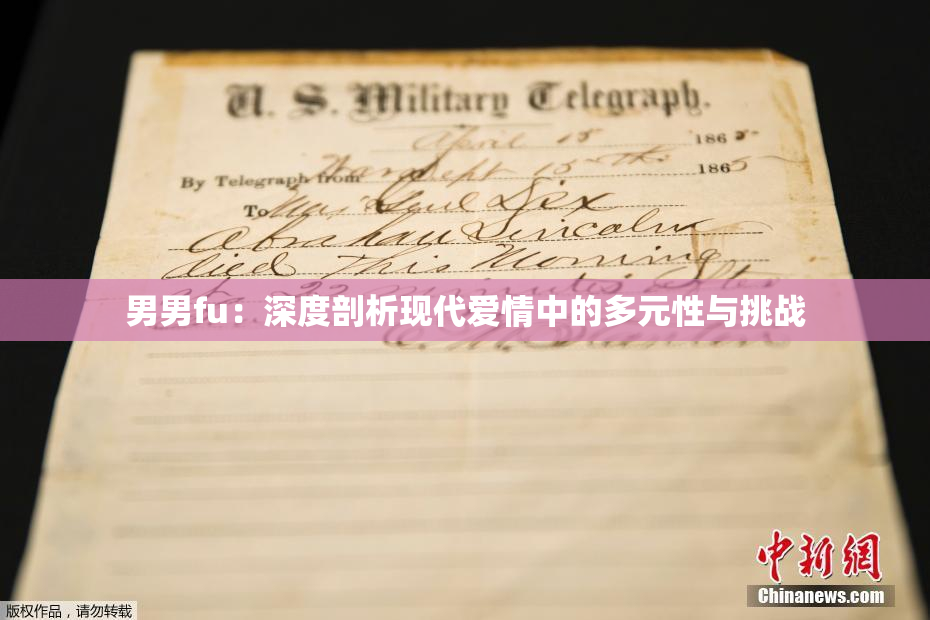 U. S. Military Telegraph.
April 15 1865
By Telegraph from War Dept 15th 1865
To Maj Genl Dix
Abraham Lincoln
died This Morning
at 22 minutes after
男男fu：深度剖析现代爱情中的多元性与挑战
E. M. Stanton
中新网
Chinanews.com
版权作品，请勿转载